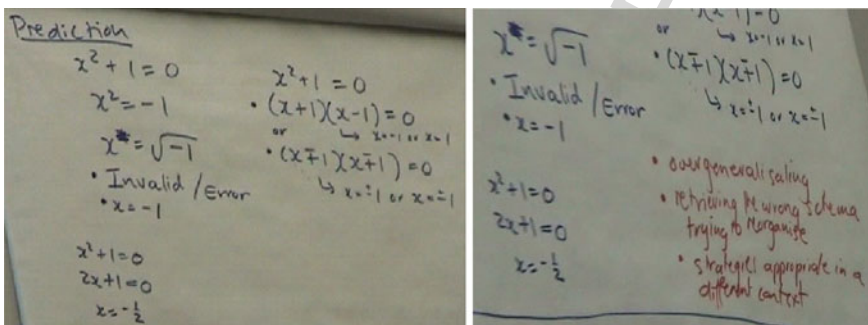 Prediction
x² + 1 = 0
x² = -1
x = √-1
• Invalid / Error
• x = -1
x² + 1 = 0
2x + 1 = 0
x = -1/2
x² + 1 = 0
• (x+1)(x-1) = 0
↳ x=-1 or x=1
or
• (x∓1)(x∓1) = 0
↳ x=±1 or x=±1
x = √-1
• Invalid / Error
• x = -1
x² + 1 = 0
2x + 1 = 0
x = -1/2
or
↳ x=-1 or x=1
• (x∓1)(x∓1) = 0
↳ x=±1 or x=±1
• overgeneralising
• retrieving the wrong schema
trying to reorganise
• strategies appropriate in a
different context